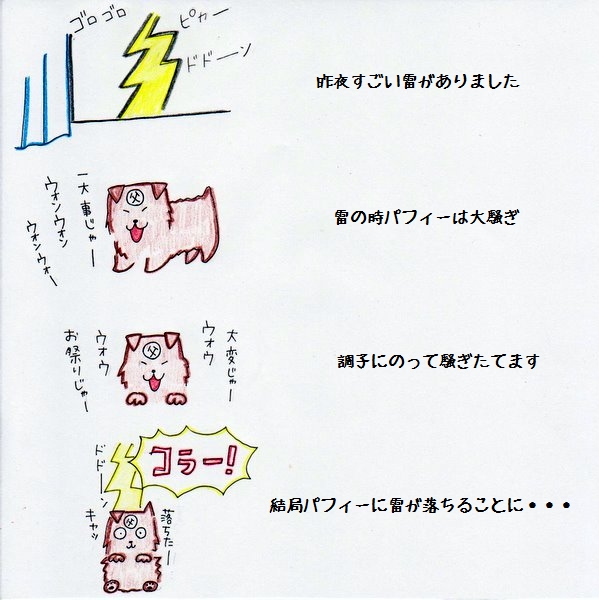 ゴロゴロ
ピカー
ドドーン
昨夜すごい雷がありました
一大事じゃー
ウォンウォン
ウォンウォー
父
雷の時パフィーは大騒ぎ
大変じゃー
ウォウ
ウォウ
お祭りじゃー
父
調子にのって騒ぎたてます
コラー!
ドドーン
落ちたー
キャッ
父
結局パフィーに雷が落ちることに・・・